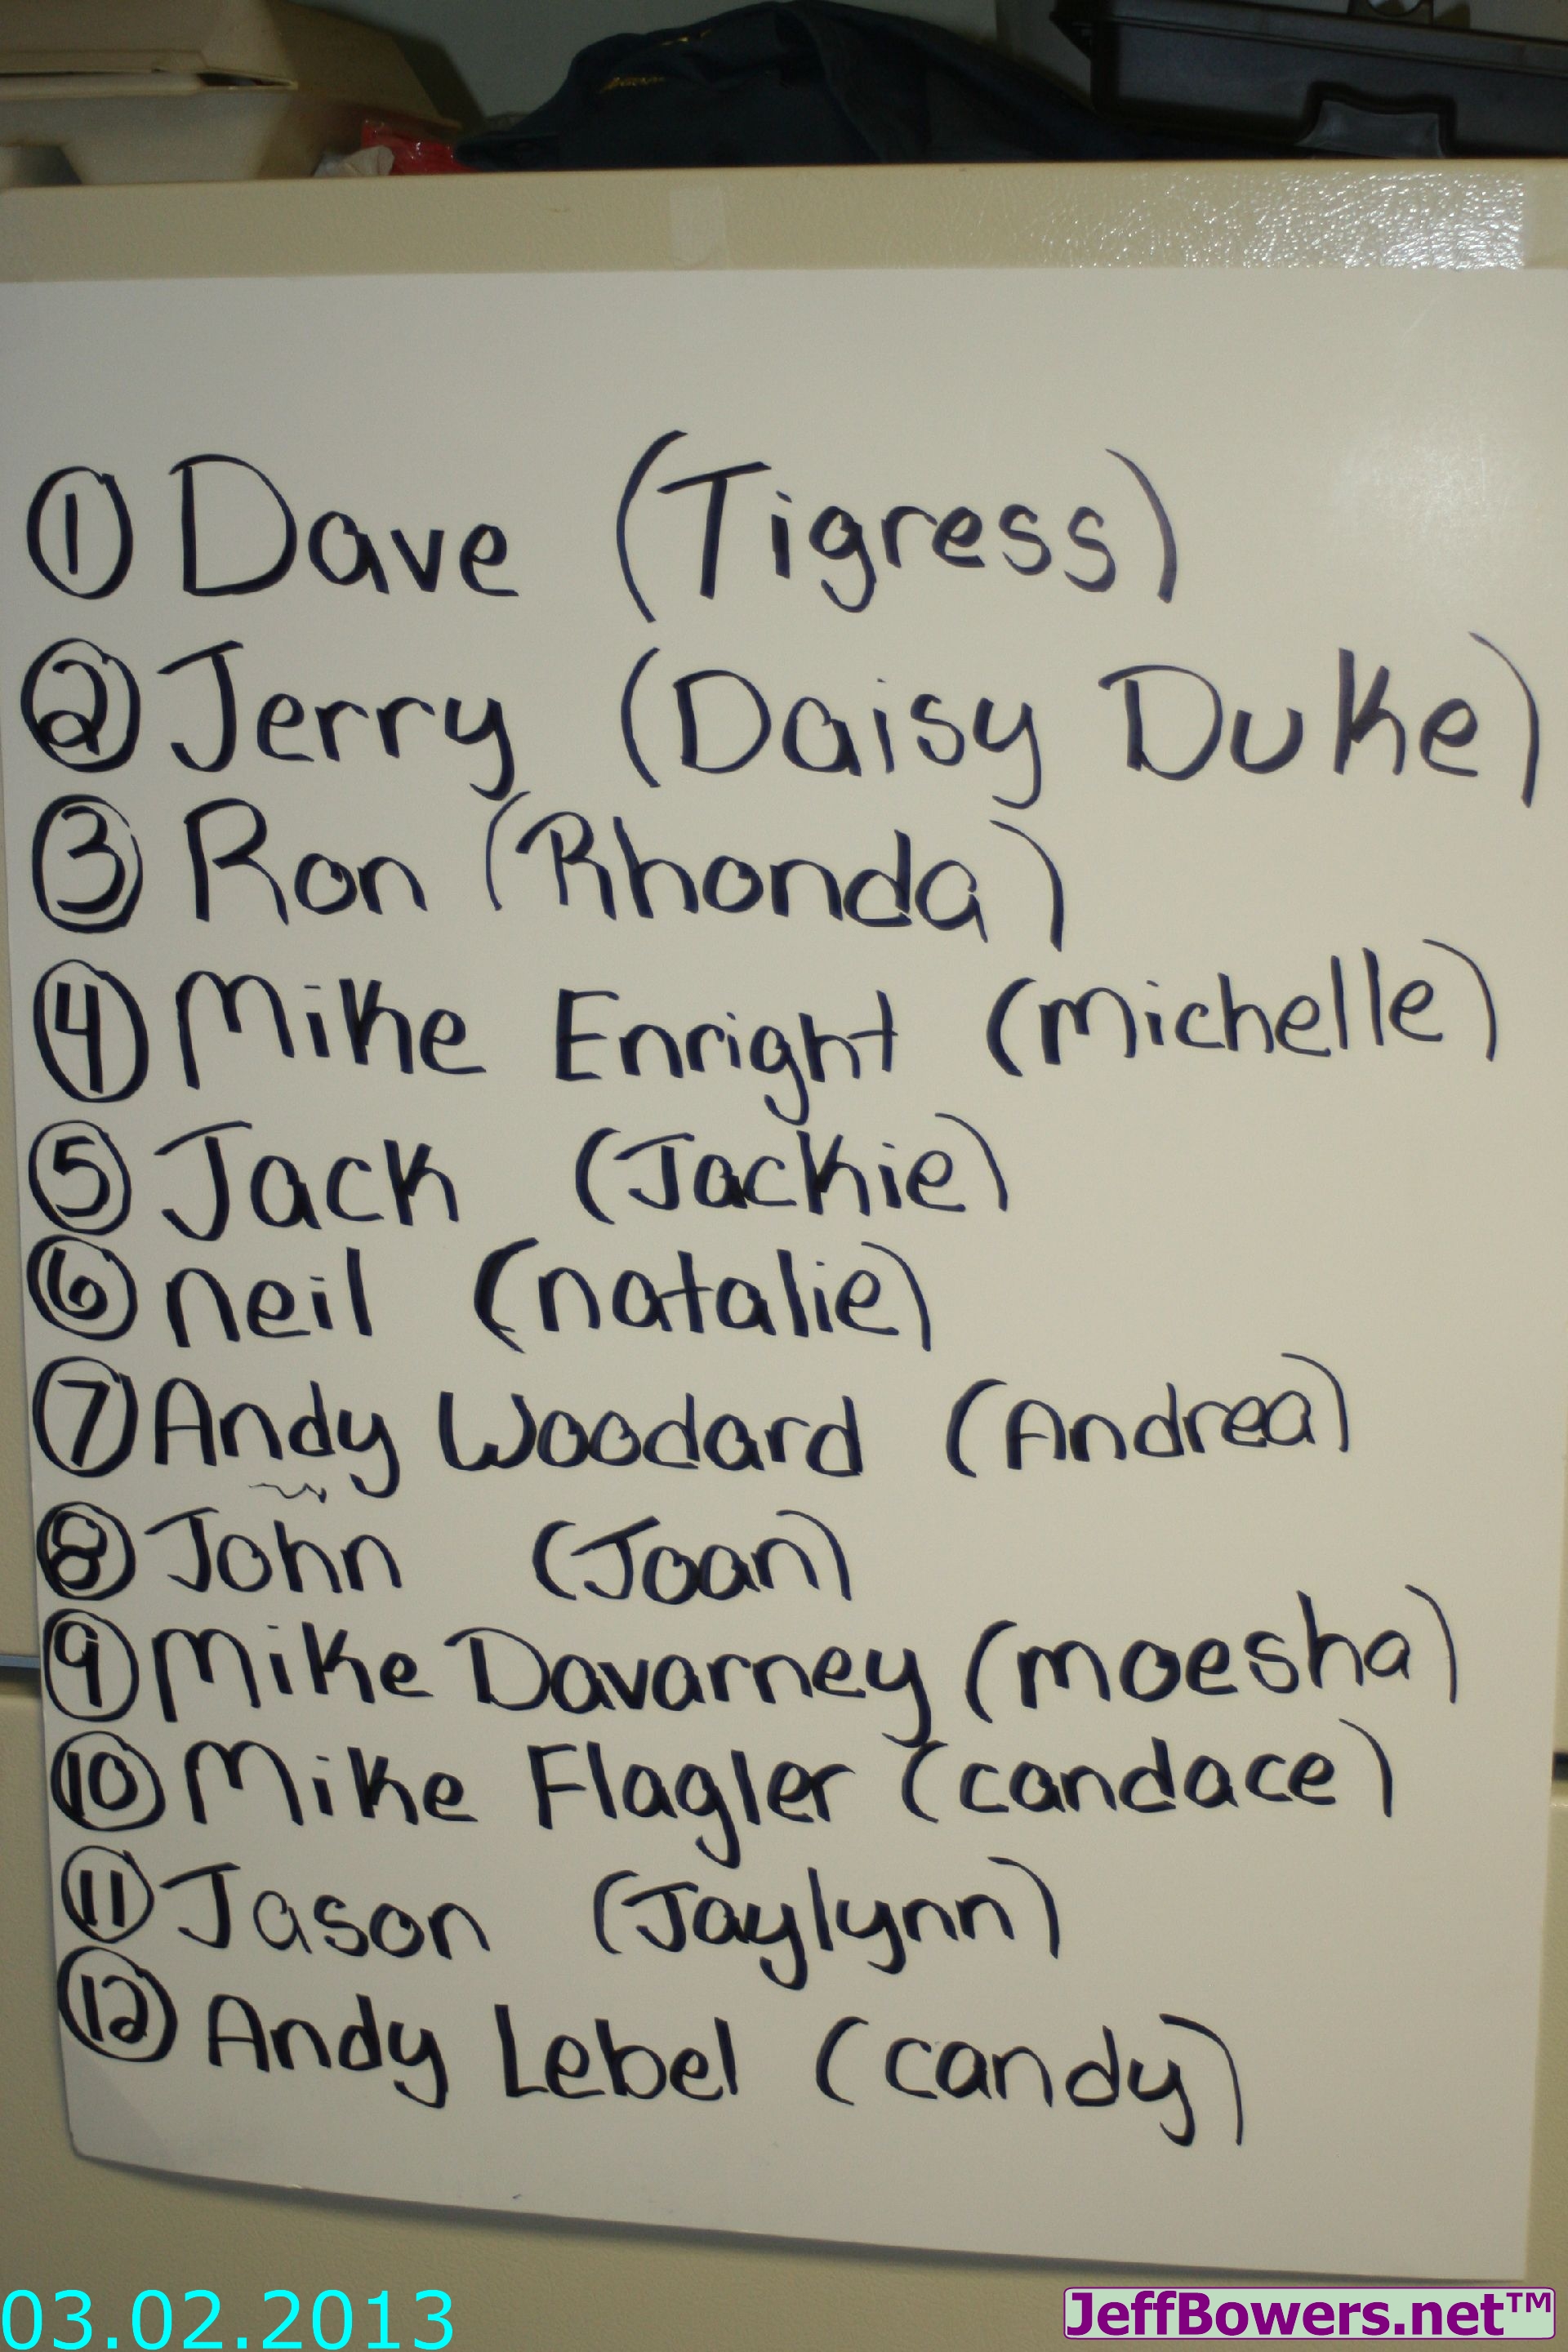 ① Dave (Tigress)
② Jerry (Daisy Duke)
③ Ron (Rhonda)
④ Mike Enright (Michelle)
⑤ Jack (Jackie)
⑥ neil (natalie)
⑦ Andy Woodard (Andrea)
⑧ John (Joan)
⑨ Mike Davarney (moesha)
⑩ Mike Flagler (candace)
⑪ Jason (Jaylynn)
⑫ Andy Lebel (candy)
03.02.2013
JeffBowers.net™